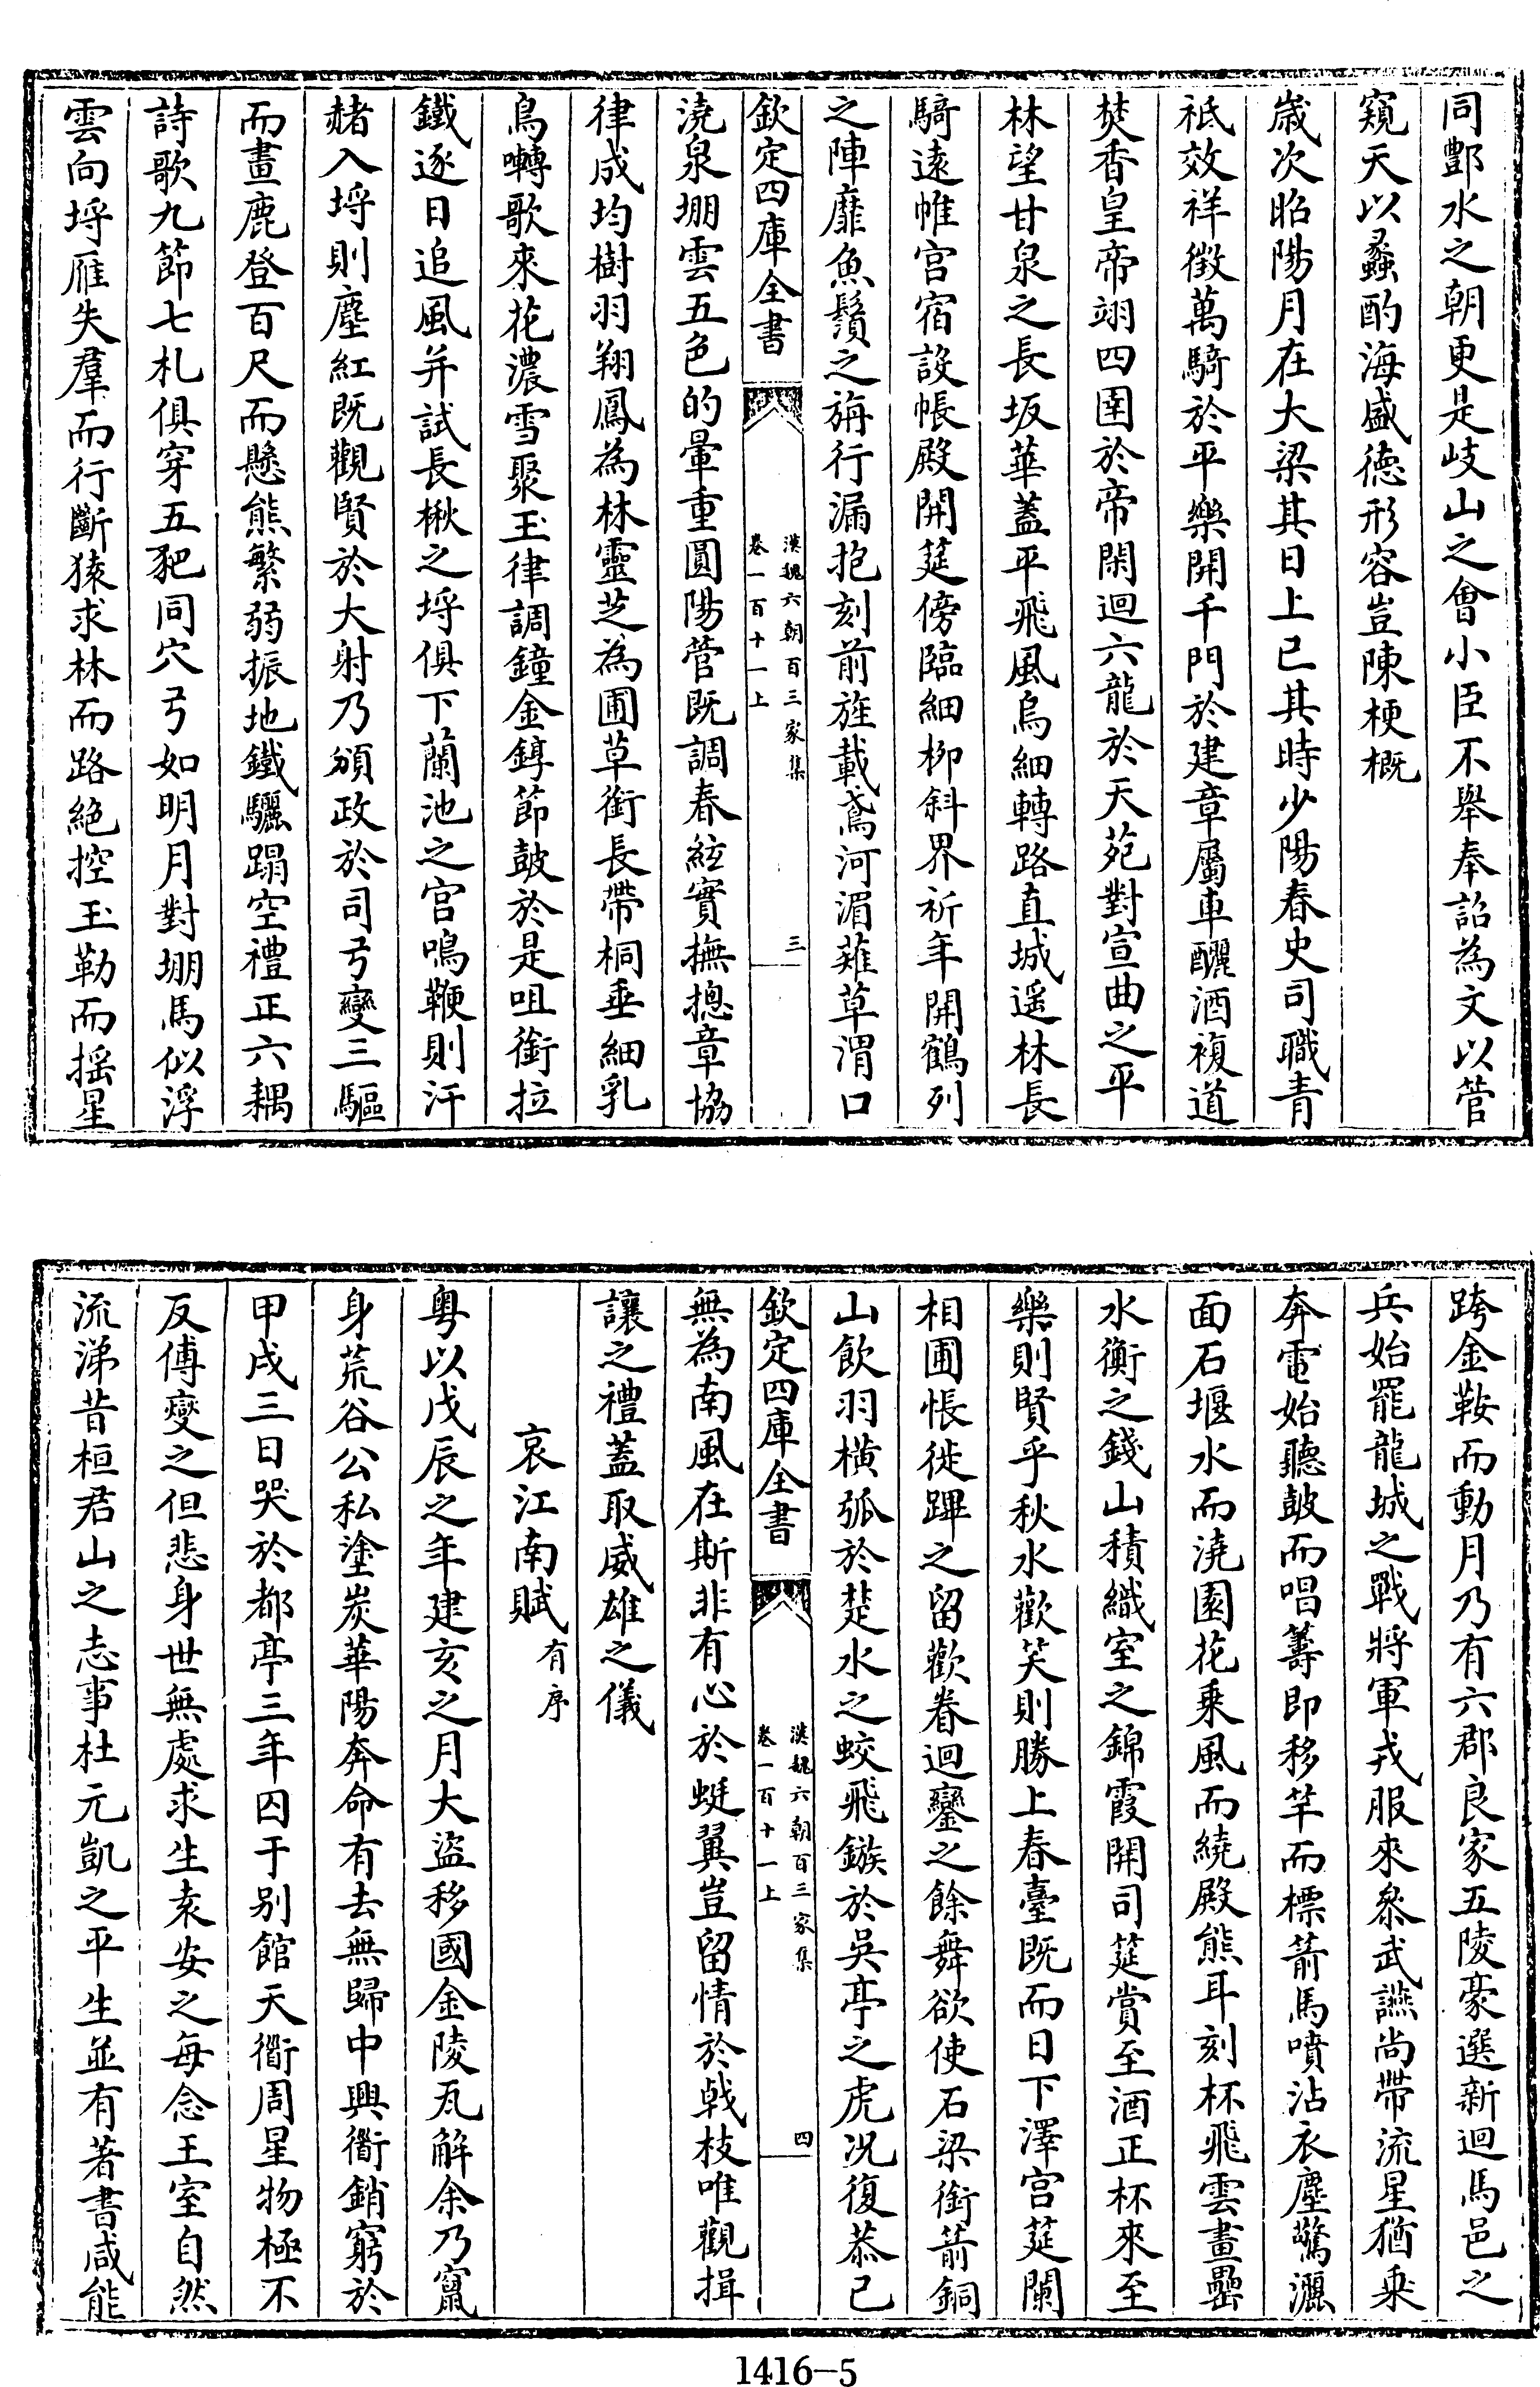 同酆水之朝更是岐山之會小臣不舉奉詔為文以管
窺天以蠡酌海盛徳形容豈陳梗概
歲次昭陽月在大梁其日上巳其時少陽春史司職青
祇效祥徴萬騎於平樂開千門於建章屬車釃酒複道
焚香皇帝翊四圉於帝閑迴六龍於天苑對宣曲之平
林望甘泉之長坂華蓋平飛風烏細轉路直城遥林長
騎逺帷宫宿設帳殿開筵傍臨細柳斜界祈年開鶴列
之陣靡魚鬚之旃行漏抱刻前旌載鳶河湄薙草渭口
欽定四庫全書
漢魏六朝百三家集
卷一百十一上
三
澆泉堋雲五色的暈重圓陽管既調春絃實撫摠章協
律成均樹羽翔鳳為林靈芝為圃草銜長帶桐垂細乳
鳥囀歌來花濃雪聚玉律調鐘金錞節鼓於是咀銜拉
鐵逐日追風并試長楸之埒俱下蘭池之宫鳴鞭則汗
赭入埒則塵紅既觀賢於大射乃頒政於司弓變三驅
而畫鹿登百尺而懸熊繁弱振地鐵驪蹋空禮正六耦
詩歌九節七札俱穿五豝同穴弓如明月對堋馬似浮
雲向埒雁失羣而行斷猿求林而路絶控玉勒而揺星
跨金鞍而動月乃有六郡良家五陵豪選新迴馬邑之
兵始罷龍城之戰將軍戎服來叅武讌尚帶流星猶乗
奔電始聽鼓而唱籌即移竿而標箭馬噴沾衣塵驚灑
面石堰水而澆園花乗風而繞殿熊耳刻杯飛雲畫罍
水衡之錢山積織室之錦霞開司筵賞至酒正杯來至
樂則賢乎秋水歡笑則勝上春臺既而日下澤宫筵闌
相圃悵徙蹕之留歡眷迴鑾之餘舞欲使石梁銜箭銅
山飲羽横弧於楚水之蛟飛鏃於吳亭之虎况復恭已
欽定四庫全書
漢魏六朝百三家集
卷一百十一上
四
無為南風在斯非有心於蜓翼豈留情於戟枝唯觀揖
讓之禮蓋取威雄之儀
哀江南賦有序
粤以戊辰之年建亥之月大盜移國金陵瓦解余乃竄
身荒谷公私塗炭華陽奔命有去無歸中興衟銷窮於
甲戌三日哭於都亭三年囚于别館天衟周星物極不
反傅燮之但悲身世無處求生袁安之每念王室自然
流涕昔桓君山之志事杜元凱之平生並有著書咸能
1416-5